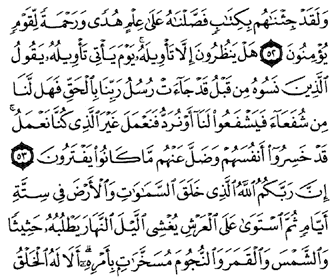 وَلَقَدْ جِئْنَٰهُم بِكِتَٰبٍ فَصَّلْنَٰهُ عَلَىٰ عِلْمٍ هُدًى وَرَحْمَةً لِّقَوْمٍ
يُؤْمِنُونَ ۝٥٢ هَلْ يَنظُرُونَ إِلَّا تَأْوِيلَهُۥ يَوْمَ يَأْتِى تَأْوِيلُهُۥ يَقُولُ
ٱلَّذِينَ نَسُوهُ مِن قَبْلُ قَدْ جَآءَتْ رُسُلُ رَبِّنَا بِٱلْحَقِّ فَهَل لَّنَا
مِن شُفَعَآءَ فَيَشْفَعُوا۟ لَنَآ أَوْ نُرَدُّ فَنَعْمَلَ غَيْرَ ٱلَّذِى كُنَّا نَعْمَلُ ۚ
قَدْ خَسِرُوٓا۟ أَنفُسَهُمْ وَضَلَّ عَنْهُم مَّا كَانُوا۟ يَفْتَرُونَ ۝٥٣
إِنَّ رَبَّكُمُ ٱللَّهُ ٱلَّذِى خَلَقَ ٱلسَّمَٰوَٰتِ وَٱلْأَرْضَ فِى سِتَّةِ
أَيَّامٍ ثُمَّ ٱسْتَوَىٰ عَلَى ٱلْعَرْشِ يُغْشِى ٱلَّيْلَ ٱلنَّهَارَ يَطْلُبُهُۥ حَثِيثًا
وَٱلشَّمْسَ وَٱلْقَمَرَ وَٱلنُّجُومَ مُسَخَّرَٰتٍۭ بِأَمْرِهِۦٓ ۗ أَلَا لَهُ ٱلْخَلْقُ